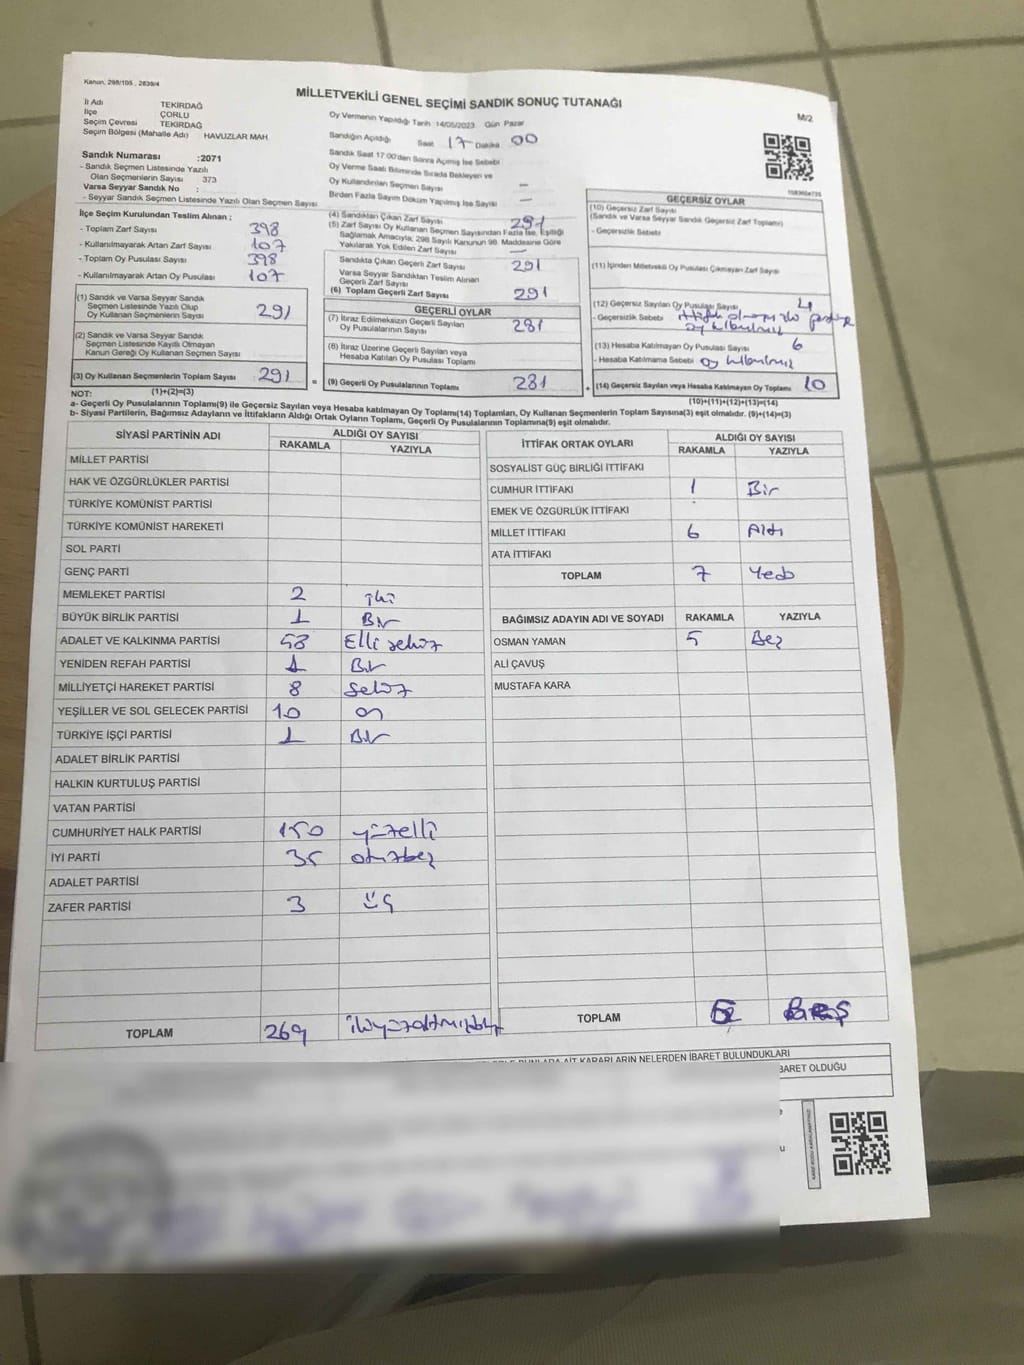 Kanun, 298/105 , 2839/4
MİLLETVEKİLİ GENEL SEÇİMİ SANDIK SONUÇ TUTANAĞI
M/2
İl Adı TEKİRDAĞ
İlçe ÇORLU
Seçim Çevresi TEKİRDAĞ
Seçim Bölgesi (Mahalle Adı) HAVUZLAR MAH.
Sandık Numarası :2071
- Sandık Seçmen Listesinde Yazılı
Olan Seçmenlerin Sayısı 373
Varsa Seyyar Sandık No :
- Seyyar Sandık Seçmen Listesinde Yazılı Olan Seçmen Sayısı
Oy Vermenin Yapıldığı Tarih :14/05/2023 Gün Pazar
Sandığın Açıldığı Saat 17 Dakika 00
Sandık Saat 17:00'den Sonra Açılmış İse Sebebi
Oy Verme Saati Bitiminde Sırada Bekleyen ve
Oy Kullandırılan Seçmen Sayısı —
Birden Fazla Sayım Döküm Yapılmış İse Sayısı —
İlçe Seçim Kurulundan Teslim Alınan ;
- Toplam Zarf Sayısı 398
- Kullanılmayarak Artan Zarf Sayısı 107
- Toplam Oy Pusulası Sayısı 398
- Kullanılmayarak Artan Oy Pusulası 107
(1) Sandık ve Varsa Seyyar Sandık
Seçmen Listesinde Yazılı Olup
Oy Kullanan Seçmenlerin Sayısı 291
(2) Sandık ve Varsa Seyyar Sandık
Seçmen Listesinde Kayıtlı Olmayan
Kanun Gereği Oy Kullanan Seçmen Sayısı
(3) Oy Kullanan Seçmenlerin Toplam Sayısı 291
(1)+(2)=(3)
(4) Sandıktan Çıkan Zarf Sayısı 291
(5) Zarf Sayısı Oy Kullanan Seçmen Sayısından Fazla İse, Eşitliği
Sağlamak Amacıyla, 298 Sayılı Kanunun 98. Maddesine Göre
Yakılarak Yok Edilen Zarf Sayısı —
Sandıkta Çıkan Geçerli Zarf Sayısı 291
Varsa Seyyar Sandıktan Teslim Alınan
Geçerli Zarf Sayısı
(6) Toplam Geçerli Zarf Sayısı 291
GEÇERLİ OYLAR
(7) İtiraz Edilmeksizin Geçerli Sayılan
Oy Pusulalarının Sayısı 281
(8) İtiraz Üzerine Geçerli Sayılan veya
Hesaba Katılan Oy Pusulası Toplamı
= (9) Geçerli Oy Pusulalarının Toplamı 281
GEÇERSİZ OYLAR
(10) Geçersiz Zarf Sayısı
(Sandık ve Varsa Seyyar Sandık Geçersiz Zarf Toplamı)
- Geçersizlik Sebebi
(11) İçinden Milletvekili Oy Pusulası Çıkmayan Zarf Sayısı
(12) Geçersiz Sayılan Oy Pusulası Sayısı 4
- Geçersizlik Sebebi
(13) Hesaba Katılmayan Oy Pusulası Sayısı 6
- Hesaba Katılmama Sebebi oy
+ (14) Geçersiz Sayılan veya Hesaba Katılmayan Oy Toplamı 10
(10)+(11)+(12)+(13)=(14)
NOT:
a- Geçerli Oy Pusulalarının Toplamı(9) ile Geçersiz Sayılan veya Hesaba katılmayan Oy Toplamı(14) Toplamları, Oy Kullanan Seçmenlerin Toplam Sayısına(3) eşit olmalıdır. (9)+(14)=(3)
b- Siyasi Partilerin, Bağımsız Adayların ve İttifakların Aldığı Ortak Oyların Toplamı, Geçerli Oy Pusulalarının Toplamına(9) eşit olmalıdır.
SİYASİ PARTİNİN ADI ALDIĞI OY SAYISI
RAKAMLA YAZIYLA
MİLLET PARTİSİ
HAK VE ÖZGÜRLÜKLER PARTİSİ
TÜRKİYE KOMÜNİST PARTİSİ
TÜRKİYE KOMÜNİST HAREKETİ
SOL PARTİ
GENÇ PARTİ
MEMLEKET PARTİSİ 2 iki
BÜYÜK BİRLİK PARTİSİ 1 Bir
ADALET VE KALKINMA PARTİSİ 58 Elli sekiz
YENİDEN REFAH PARTİSİ 1 Bir
MİLLİYETÇİ HAREKET PARTİSİ 8 Sekiz
YEŞİLLER VE SOL GELECEK PARTİSİ 10 on
TÜRKİYE İŞÇİ PARTİSİ 1 Bir
ADALET BİRLİK PARTİSİ
HALKIN KURTULUŞ PARTİSİ
VATAN PARTİSİ
CUMHURİYET HALK PARTİSİ 150 yüzelli
İYİ PARTİ 35 otuzbeş
ADALET PARTİSİ
ZAFER PARTİSİ 3 üç
TOPLAM 269 ikiyüzaltmışdokuz
İTTİFAK ORTAK OYLARI ALDIĞI OY SAYISI
RAKAMLA YAZIYLA
SOSYALİST GÜÇ BİRLİĞİ İTTİFAKI
CUMHUR İTTİFAKI 1 Bir
EMEK VE ÖZGÜRLÜK İTTİFAKI
MİLLET İTTİFAKI 6 Altı
ATA İTTİFAKI
TOPLAM 7 Yedi
BAĞIMSIZ ADAYIN ADI VE SOYADI RAKAMLA YAZIYLA
OSMAN YAMAN 5 Beş
ALİ ÇAVUŞ
MUSTAFA KARA
TOPLAM 5 Beş
KARARLARIN NELERDEN İBARET BULUNDUKLARI
BARET OLDUĞU